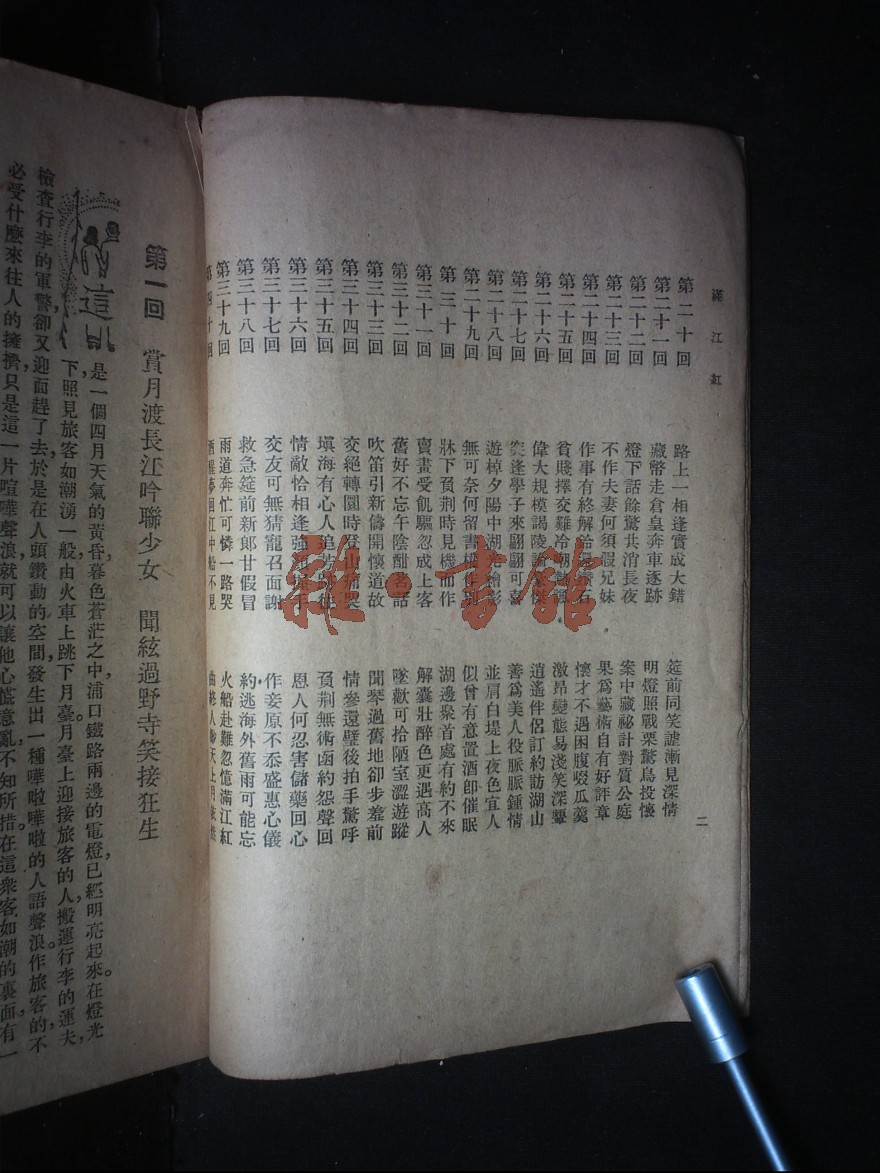 滿江紅
第二十回 路上一相逢實成大錯 筵前同笑謔漸見深情
第二十一回 藏幣走倉皇奔車逐跡 明燈照戰栗驚鳥投懷
第二十二回 燈下話餘驚共消長夜 案中藏祕計對質公庭
第二十三回 不作夫妻何須假兄妹 果爲藝術自有好評章
第二十四回 作事有終解 懷才不遇困腹啜瓜羹
第二十五回 貧賤擇交難冷 激昂變態易淺笑深顰
第二十六回 偉大規模謁陵 逍遙伴侶訂約訪湖山
第二十七回 突逢學子來翩翩可喜 善爲美人役脈脈鍾情
第二十八回 遊棹夕陽中湖 並肩白堤上夜色宜人
第二十九回 無可奈何留書 似曾有意置酒卽催眠
第三十回 牀下負荆時見機而作 湖邊聚首處有約不來
第三十一回 賣畫受飢驅忽成上客 解囊壯醉色更遇高人
第三十二回 舊好不忘午陰酣茗話 墜歡可拾陋室澀遊蹤
第三十三回 吹笛引新儔開懷道故 聞琴過舊地卻步羞前
第三十四回 交絕轉圜時登山痛哭 情參還璧後拍手驚呼
第三十五回 塡海有心人追 負荆無術函約怨聲回
第三十六回 情敵恰相逢強 手 恩人何忍害儲藥回心
第三十七回 交友可無猜寵召面謝 作妾原不忝盛惠心儀
第三十八回 救急筵前新郞甘假冒 約逃海外舊雨可能忘
第三十九回 雨道奔忙可憐一路哭 火船赴難忽憶滿江紅
第四十回
二
雜·書館
第一回 賞月渡長江吟聯少女 聞絃過野寺笑接狂生
這是一個四月天氣的黃昏，暮色蒼茫之中，浦口鐵路兩邊的電燈，已經明亮起來。在燈光
下，照見旅客如潮湧一般，由火車上跳下月臺。月臺上迎接旅客的人，搬運行李的運夫，
檢査行李的軍警，卻又迎面趕了去，於是在人頭鑽動的空間，發生出一種嘩啦嘩啦的人語聲浪。作旅客的，不
必受什麽來往人的擁擠，只是這一片喧嘩聲浪，就可以讓他心慌意亂，不知所措。在這衆客如潮的裏面，有一